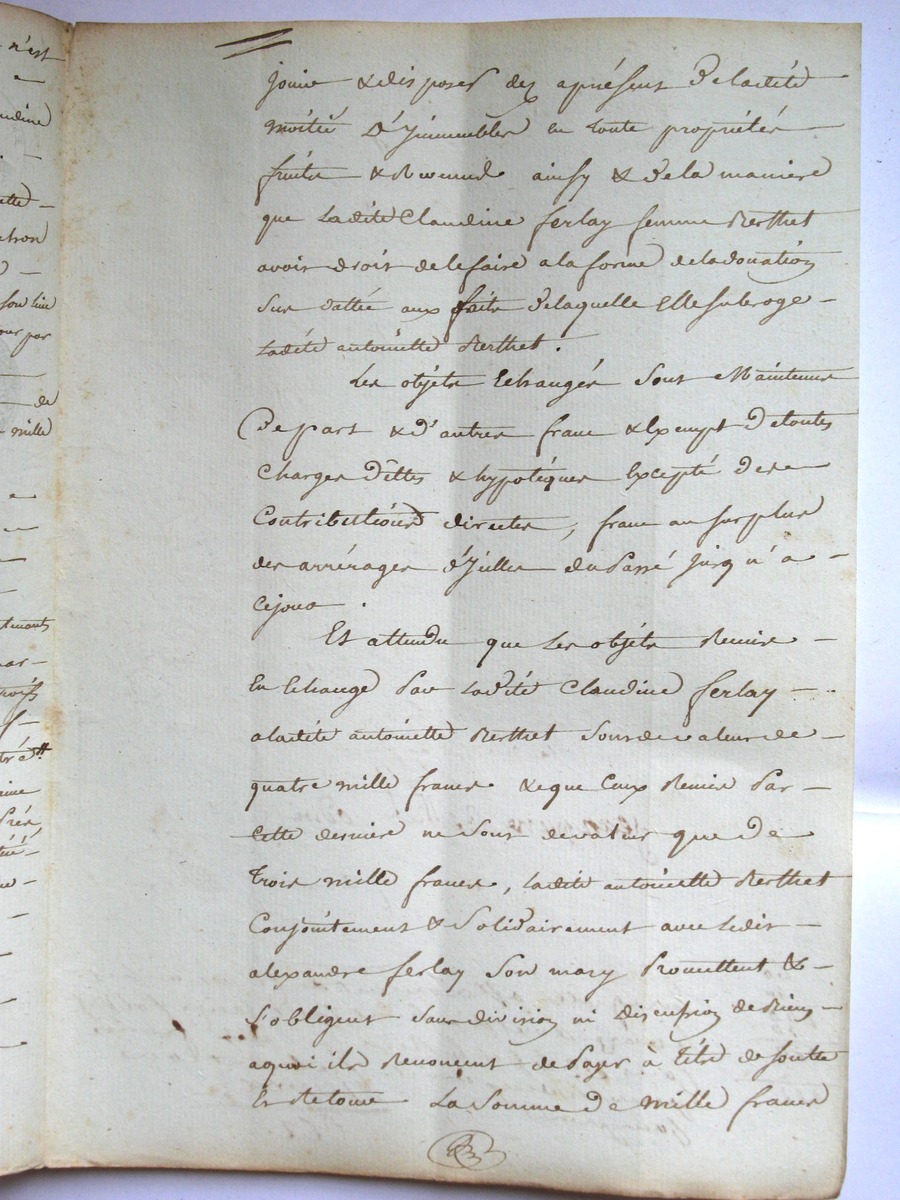 n'est
jouir & disposer dez aprésent de ladité
moitié D'ymmeubles en toute propriétés
fruits & Revenus ainsy & de la maniere
que Ladité Claudine ferlay femme Berthet
avoit droit de le faire a la forme de la donation
Sus dattée aux faits de laquelle Elle subroge
Ladité antoinette Berthet.
Les objéts Echangés Sont Maintenus
De part & d'autres franc & Exempt De toutes
Charges Dêttes & hypotéques Excepté des
Contributions directes, franc au surplus
des arrérages d'ycelles du Passé jusqu'a
Cejour.
Et attendu que Les objéts Remis
En Echange Par Ladité Claudine ferlay
aladité antoinette Berthet Sont de valeur de
quatre mille francs & que Ceux Remis Par
Cette derniere ne Sont devaleur que De
Trois mille francs, Ladité antoinette Berthet
Conjointement & Solidairement avec Ledit
alexandre ferlay Son mary Promettent &
Sobligent Sans division ni Discussion de Biens
aquoi ils Renoncent de Payer à titre de Soulte
Et Retour La Somme De Mille francs